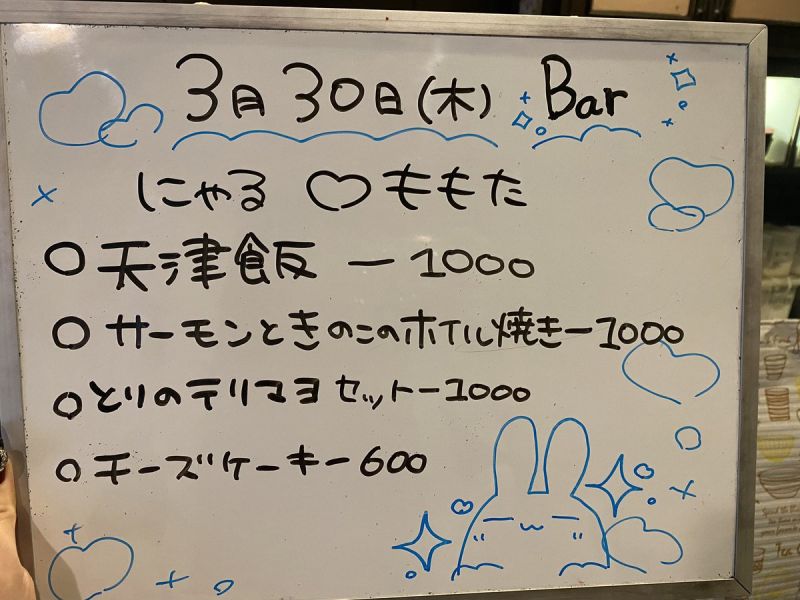 3月30日(木) Bar
にゃる ♡ ももた
○ 天津飯 ー 1000
○ サーモンときのこのホイル焼きー1000
○ とりのテリマヨセットー1000
○ チーズケーキー600